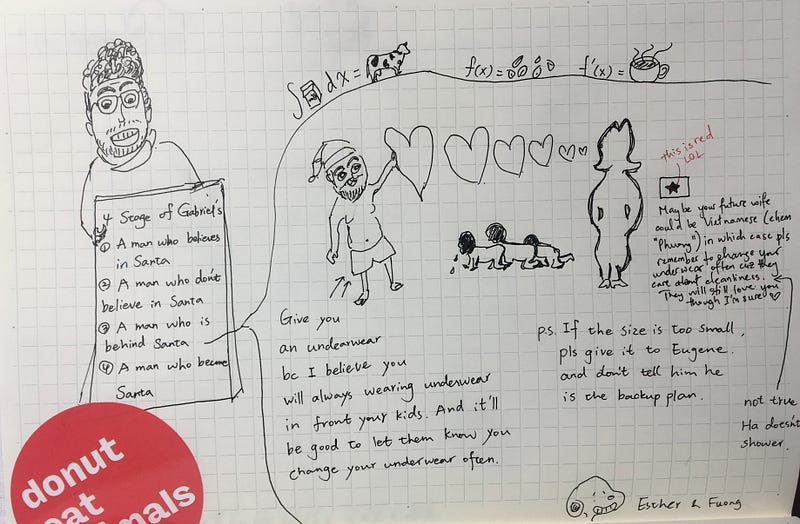 ∫ dx =
f(x) =
f'(x) =
4 Stage of Gabriel's
① A man who believes
in Santa
② A man who don't
believe in Santa
③ A man who is
behind Santa
④ A man who became
Santa
Give you
an undearwear
bc I believe you
will always wearing underwear
in front your kids. And it'll
be good to let them know you
change your underwear often.
this is red
LOL
Maybe your future wife
could be Vietnamese (chem
"Phuong") in which case pls
remember to change your
underwear often cuz they
care about cleanliness.
They will still love you
though I'm sure
p.s. If the size is too small,
pls give it to Eugene.
and don't tell him he
is the backup plan.
not true
Ha doesn't
shower.
Esther & Fuong
donut
eat